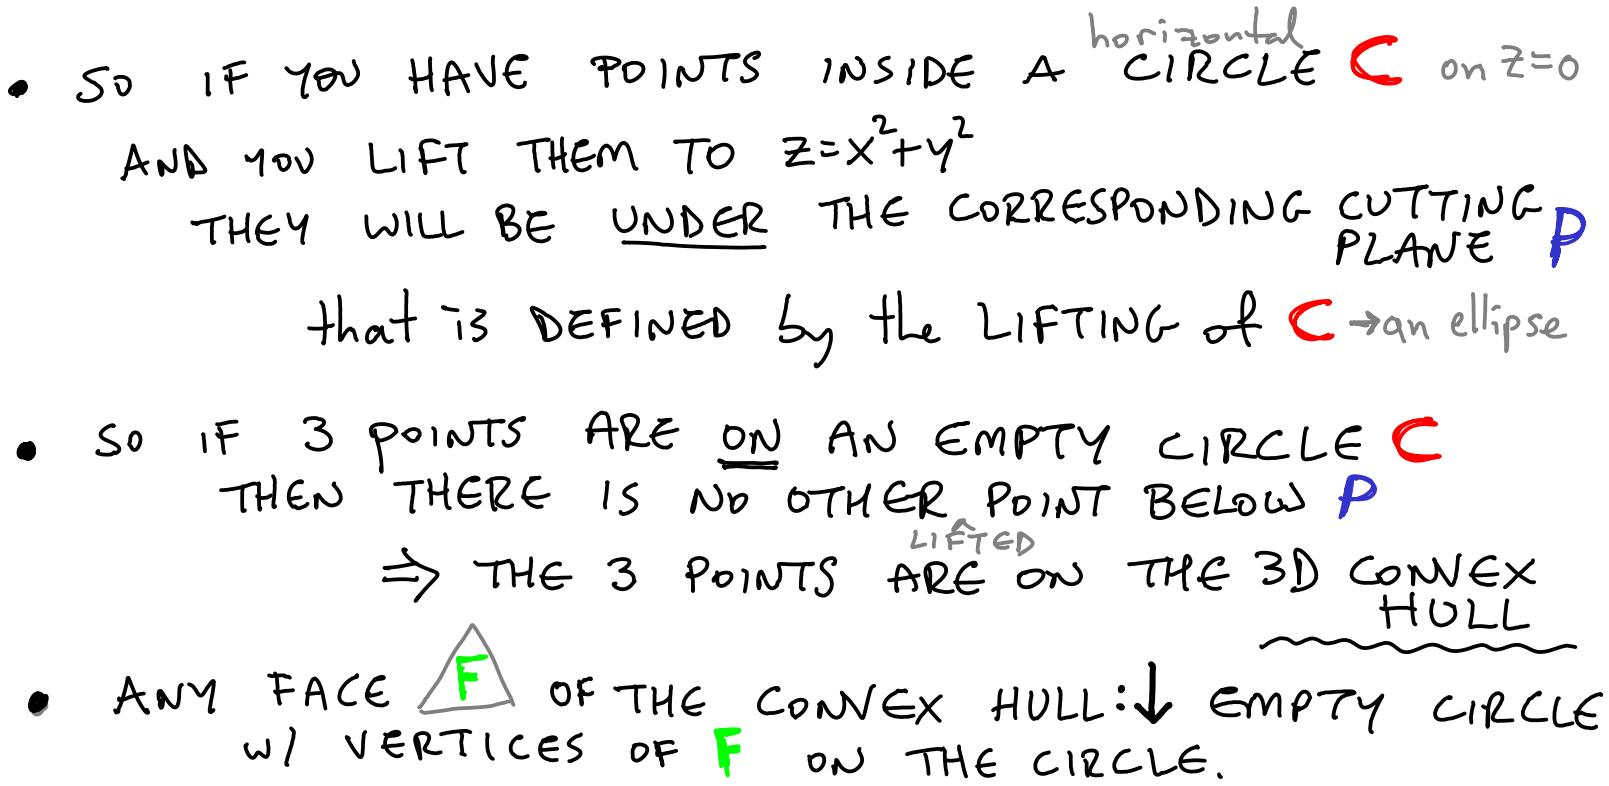 • SO IF YOU HAVE POINTS INSIDE A horizontal CIRCLE C on z=0
AND YOU LIFT THEM TO z=x²+y²
THEY WILL BE UNDER THE CORRESPONDING CUTTING PLANE P
that is DEFINED by the LIFTING of C → an ellipse
• SO IF 3 POINTS ARE ON AN EMPTY CIRCLE C
THEN THERE IS NO OTHER POINT BELOW P
LIFTED
⇒ THE 3 POINTS ARE ON THE 3D CONVEX HULL
• ANY FACE F OF THE CONVEX HULL: ↓ EMPTY CIRCLE
w/ VERTICES OF F ON THE CIRCLE.